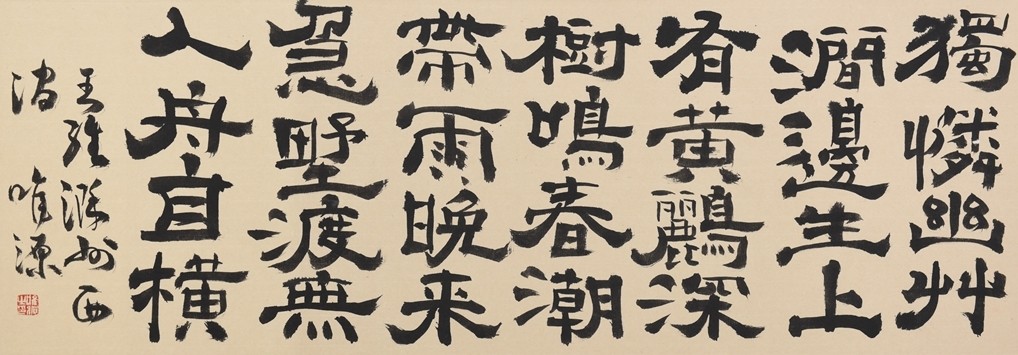 獨憐幽艸
澗邊生上
有黄鸝深
樹鳴春潮
帶雨晚来
急野渡無
人舟自横
王維滁州西
唯